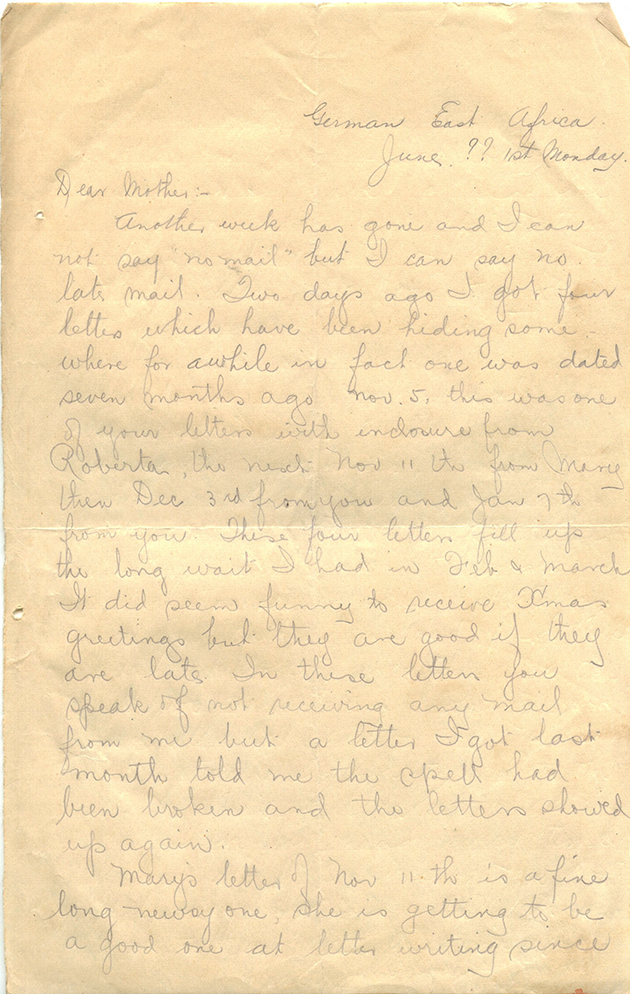 German East Africa.
June. ?? 1st Monday.
Dear Mother:-
Another week has gone and I can
not say "no mail" but I can say no
late mail. Two days ago I got four
letters which have been hiding some-
where for awhile in fact one was dated
seven months ago Nov. 5, this was one
of your letters with inclosure from
Roberta, the next Nov 11 th from Mary
then Dec 3rd from you and Jan 7th
from you. These four letters fill up
the long wait I had in Feb & March
It did seem funny to receive X'mas
greetings but they are good if they
are late. In these letters you
speak of not receiving any mail
from me but a letter I got last
month told me the spell had
been broken and the letters showed
up again.
Mary's letter of Nov 11.th is a fine
long newsy one, she is getting to be
a good one at letter writing since